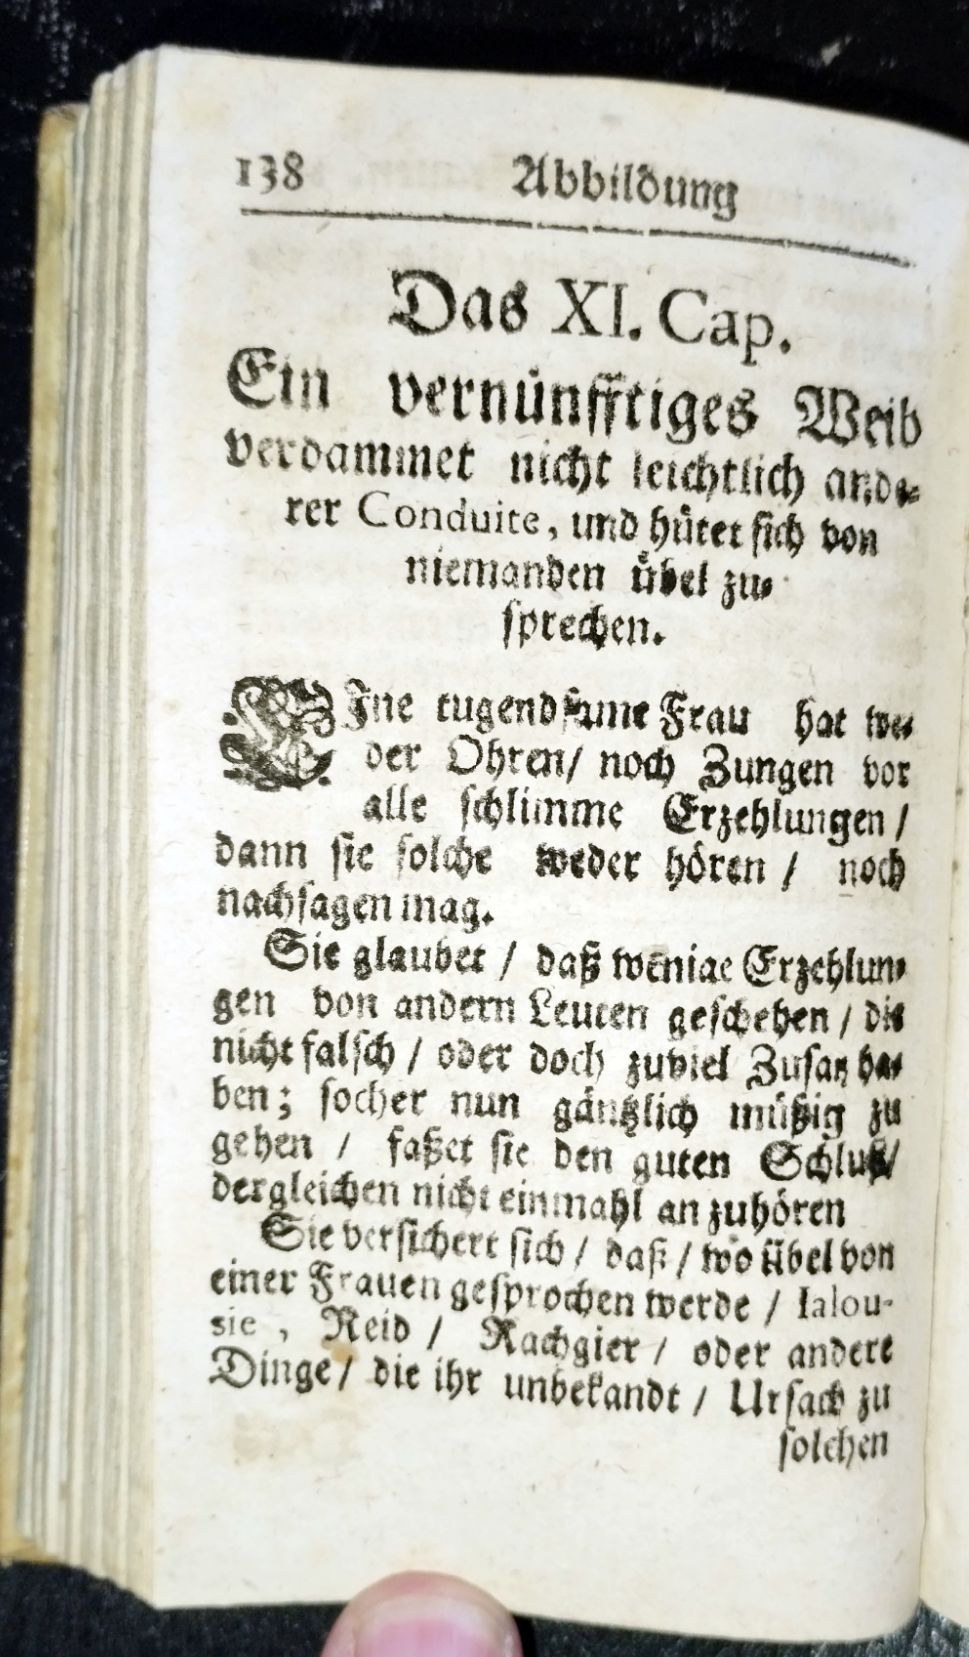 138 Abbildung
Das XI. Cap.
Ein vernünfftiges Weib
verdammet nicht leichtlich ande-
rer Conduite, und hütet sich von
niemanden übel zu-
sprechen.
EIne tugendsame Frau hat we-
der Ohren/ noch Zungen vor
alle schlimme Erzehlungen /
dann sie solche weder hören / noch
nachsagen mag.
Sie glaubet / daß wenige Erzehlun-
gen von andern Leuten geschehen / die
nicht falsch / oder doch zuviel Zusatz ha-
ben; socher nun gäntzlich müßig zu
gehen / faßet sie den guten Schluß/
dergleichen nicht einmahl an zuhören
Sie versichert sich / daß / wo übel von
einer Frauen gesprochen werde / Ialou-
sie , Neid / Rachgier / oder andere
Dinge / die ihr unbekandt / Ursach zu
solchen